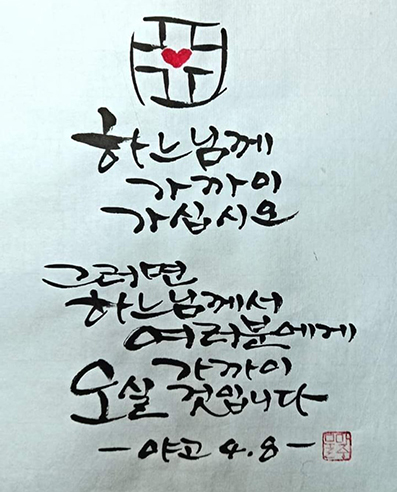 하느님께
가까이
가십시오
그러면
하느님께서
여러분에게
가까이
오실 것입니다
- 야고 4.8 -